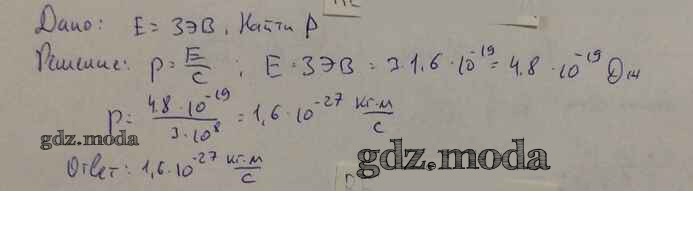 Дано: E = 3 эВ, Найти p
Решение: p = E/c ; E = 3 эВ = 3·1,6·10^-19 = 4,8·10^-19 Дж
p = 4,8·10^-19 / 3·10^8 = 1,6·10^-27 кг·м/с
gdz.moda
Ответ: 1,6·10^-27 кг·м/с
gdz.moda